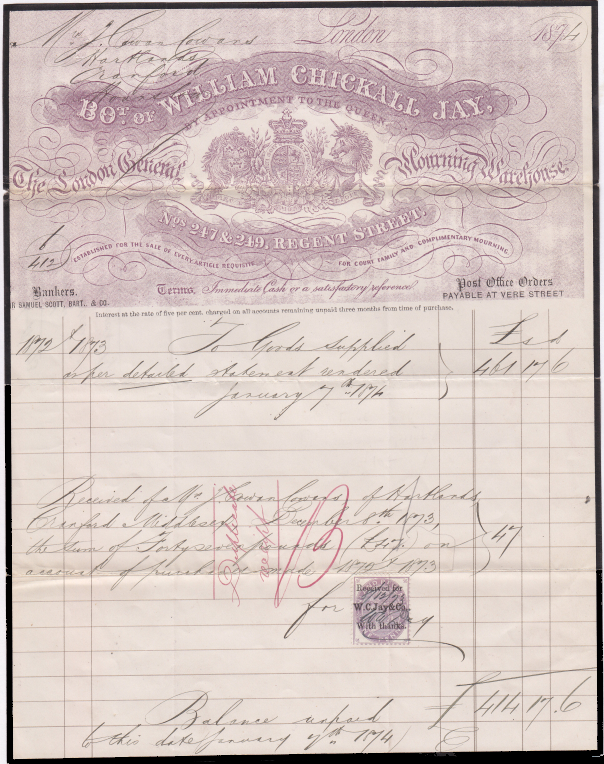 London 1874
Hartlands
Cranford
BOT. OF WILLIAM CHICKALL JAY,
BY APPOINTMENT TO THE QUEEN
The London General Mourning Warehouse.
Nos 247 & 249, REGENT STREET.
6
412
ESTABLISHED FOR THE SALE OF EVERY ARTICLE REQUISITE FOR COURT FAMILY AND COMPLIMENTARY MOURNING
Bankers. Post Office Orders
SIR SAMUEL SCOTT, BART., & CO. PAYABLE AT VERE STREET
Terms, Immediate Cash or a satisfactory reference.
Interest at the rate of five per cent. charged on all accounts remaining unpaid three months from time of purchase.
1872 & 1873 To Goods supplied £ s d
as per detailed statement rendered 461 17 6
January 7th 1874
Received of Mrs J Cowan Cowans of Hartlands
Cranford Middlesex December 8th 1873,
the sum of Forty seven pounds (£47) on 47
account of purchases made 1872 & 1873
Duplicate
receipt
for Jay
Received for
W.C. Jay & Co.
With thanks.
Balance unpaid £ 414 17. 6
to this date January 7th 1874